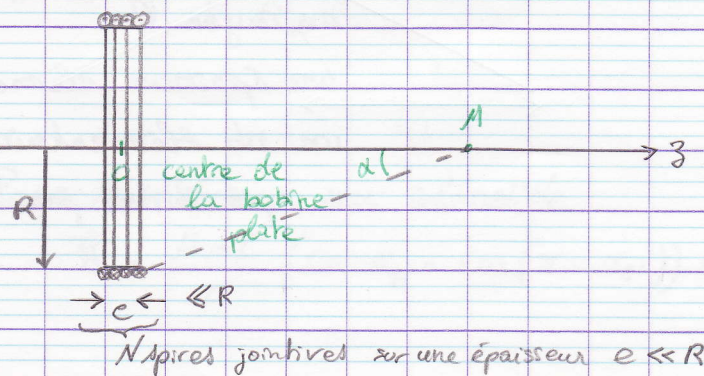 M
O centre de α
la bobine
plate
z
R
e << R
N spires jointives sur une épaisseur e << R